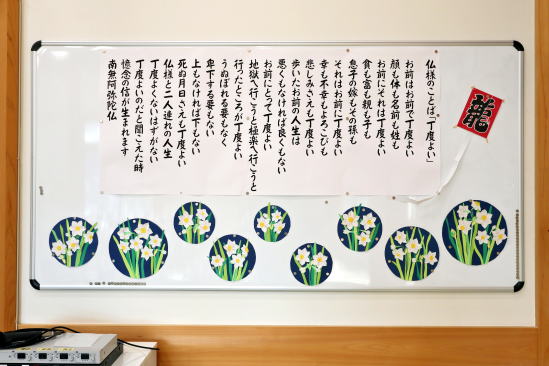 仏様のことば「丁度よい」
お前はお前で丁度よい
顔も体も名前も姓も
お前にそれは丁度よい
貧も富も親も子も
息子の嫁もその孫も
それはお前に丁度よい
幸も不幸もよろこびも
悲しみさえも丁度よい
歩いたお前の人生は
悪くもなければ良くもない
お前にとって丁度よい
地獄へ行こうと極楽へ行こうと
行ったところが丁度よい
うぬぼれる要もなく
卑下する要もない
上もなければ下もない
死ぬ月日さえも丁度よい
仏様と二人連れの人生
丁度よくないはずがない
丁度よいのだと聞こえた時
憶念の信が生まれます
南無阿弥陀仏
龍